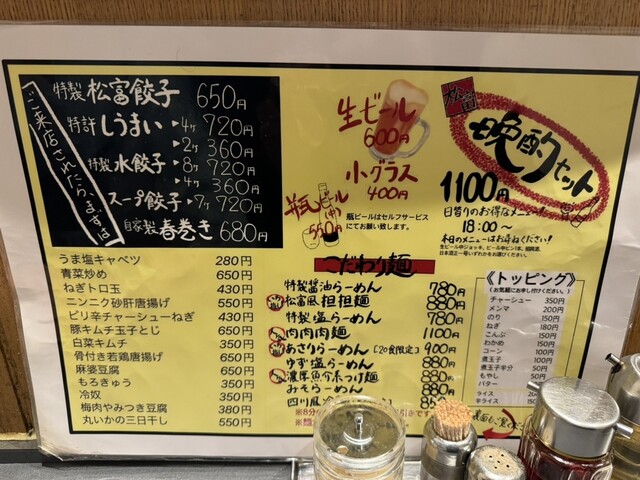 ご来店されたら、まずは
特製 松富餃子 650円
特許 しうまい 4ヶ 720円
2ヶ 360円
特製 水餃子 8ヶ 720円
4ヶ 360円
スープ餃子 7ヶ 720円
自家製 春巻き 680円
うま塩キャベツ 280円
青菜炒め 650円
ねぎトロ玉 350円
ニンニク砂肝唐揚げ 550円
ピリ辛チャーシューねぎ 430円
豚キムチ玉子とじ 650円
白菜キムチ 350円
骨付き若鶏唐揚げ 650円
麻婆豆腐 650円
もろきゅう 350円
冷奴 350円
梅肉やみつき豆腐 380円
丸いかの三日干し 550円
生ビール
600円
小グラス
400円
瓶ビール
(中)
550円
瓶ビールはセルフサービス
にてお願い致します。
松富
晩酌セット
1100円
日替りのお得なメニュー
18:00～
本日のメニューはお尋ねください!
こだわり麺
特製醤油らーめん 780円
松富風担担麺 880円
特製塩らーめん 780円
肉肉肉麺 1100円
あさりらーめん【20食限定】 900円
ゆず塩らーめん 880円
濃厚魚介系つけ麺 880円
みそらーめん 880円
四川風冷
《トッピング》
(お気軽にお申し付けください。)
チャーシュー 350円
メンマ 200円
のり 150円
ねぎ 180円
こんぶ 150円
わかめ 150円
コーン 100円
煮玉子 100円
煮玉子半分 50円
もやし 50円
バター
ライス
半ライス